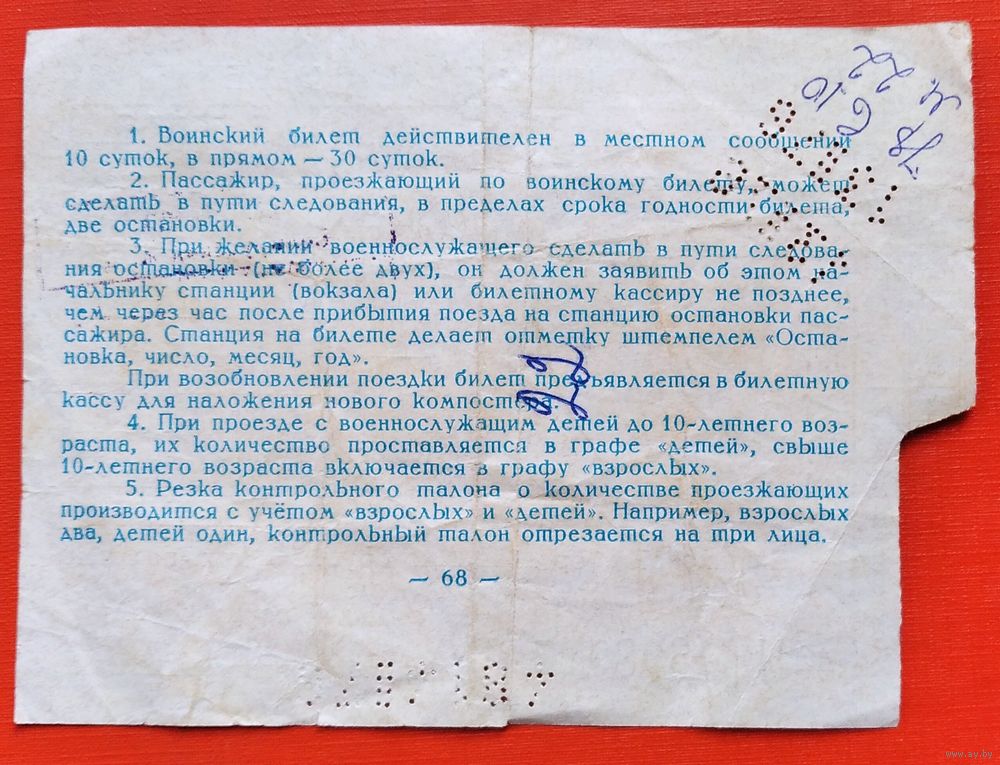 1. Воинский билет действителен в местном сообщении
10 суток, в прямом — 30 суток.
2. Пассажир, проезжающий по воинскому билету, может
сделать в пути следования, в пределах срока годности билета,
две остановки.
3. При желании военнослужащего сделать в пути следова-
ния остановки (не более двух), он должен заявить об этом на-
чальнику станции (вокзала) или билетному кассиру не позднее,
чем через час после прибытия поезда на станцию остановки пас-
сажира. Станция на билете делает отметку штемпелем «Оста-
новка, число, месяц, год».
При возобновлении поездки билет предъявляется в билетную
кассу для наложения нового компостера.
4. При проезде с военнослужащим детей до 10-летнего воз-
раста, их количество проставляется в графе «детей», свыше
10-летнего возраста включается в графу «взрослых».
5. Резка контрольного талона о количестве проезжающих
производится с учётом «взрослых» и «детей». Например, взрослых
два, детей один, контрольный талон отрезается на три лица.
— 68 —
www.ay.by